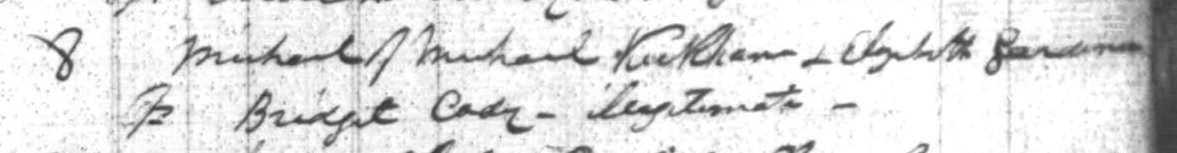 8 Michael of Michael Kirkham & Elizabeth Gardiner
Bridget Cody - illegitimate -